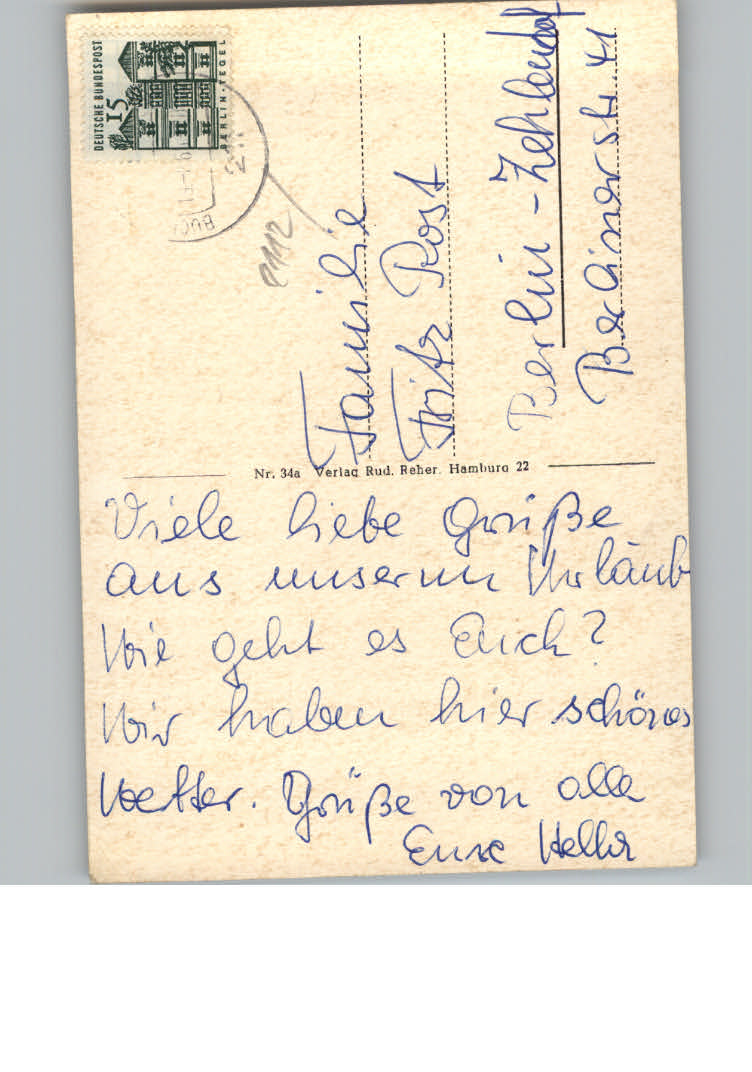 DEUTSCHE BUNDESPOST
15
BERLIN-TEGEL
Familie
Fritz Post
Berlin-Zehlendorf
Berlinerstr. 41
Nr. 34a Verlag Rud. Reher. Hamburg 22
Viele liebe Grüße
aus unserm Urlaub
Wie geht es Euch?
Wir haben hier schönes
Wetter. Grüße von alle
Eure